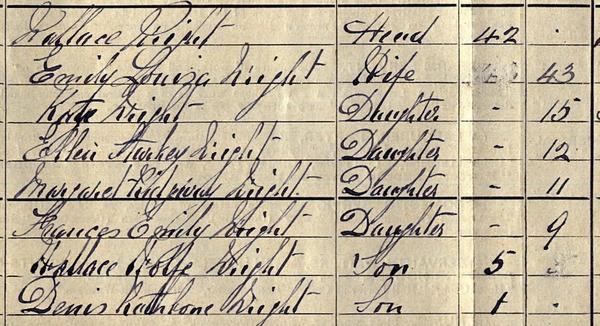 Wallace Wright Head 42 .
Emily Louiza Wright Wife 43
Kate Wright Daughter - 15
Ellen Starkey Wright Daughter - 12
Margaret Ridgway Wright Daughter - 11
Frances Emily Wright Daughter - 9
Wallace Wright Son 5
Denis Rathbone Wright Son 1 .